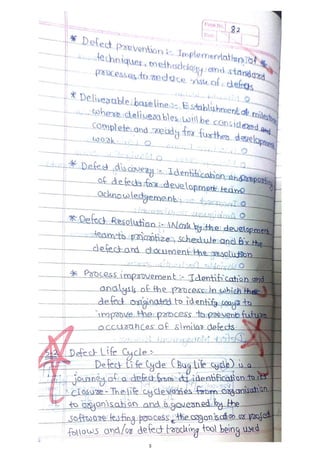 Page No. 82
Date
* Defect prevention :- Implementation of
techniques, methodology and standard
processes to reduce risk of defects
* Deliverable baseline :- Establishment of milestone
where deliverables will be considered and
complete and ready for further development
work
* Defect discovery :- Identification and reporting
of defects for development team
acknowledgement
* Defect Resolution :- Work by the development
team to prioritize, schedule and fix the
defect and document the resolution
* Process improvement :- Identification and
analysis of the process in which the
defect originated to identify ways to
improve the process to prevent future
occurances of similar defects
Defect Life Cycle :-
Defect life Cycle (Bug life cycle) is a
journey of a defect from its identification to its
closure - The life cycle varies from organisation
to organisation and is governed by the
software testing process, the organisation or project
follows and/or defect tracking tool being used
3